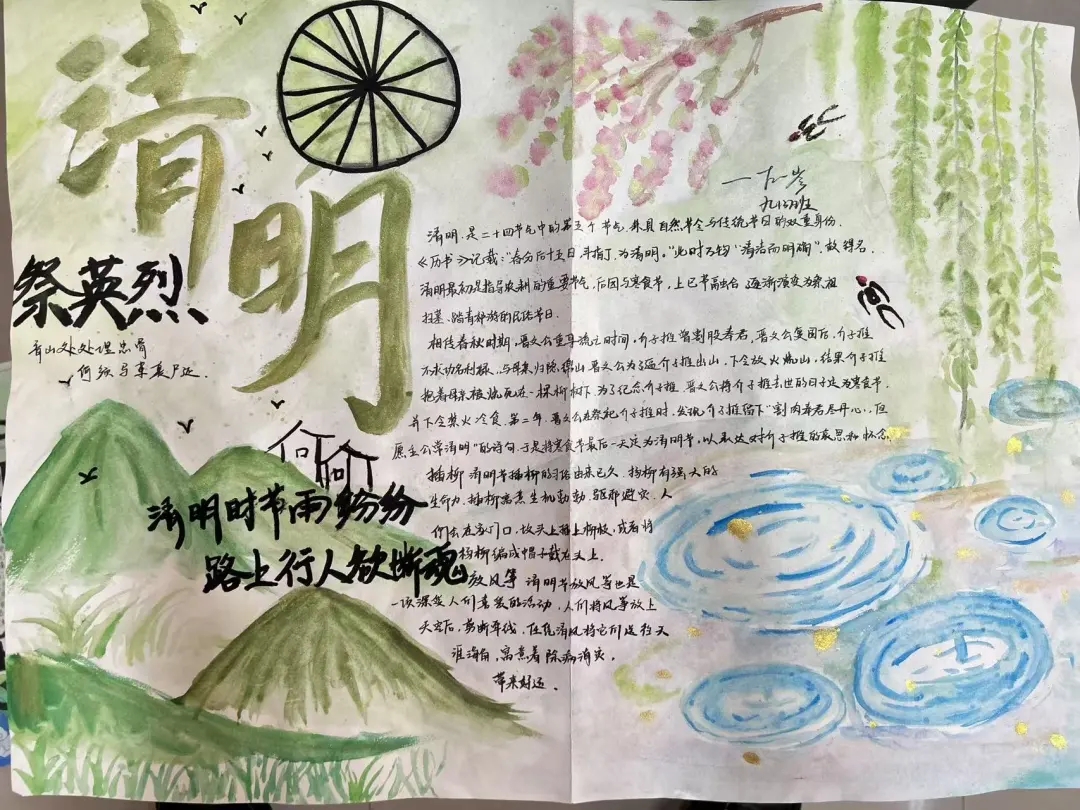 清明
祭英烈
青山处处埋忠骨
何须马革裹尸还
清明时节雨纷纷
路上行人欲断魂
清明,是二十四节气中的第五个节气,兼具自然节令与传统节日的双重身份.
《历书》记载:"春分后十五日,斗指丁,为清明。"此时万物"清洁而明确",故得名.
清明最初是指导农耕的重要节气,后因与寒食节,上巳节融合,逐渐演变为祭祖
扫墓、踏青郊游的民俗节日.
相传春秋时期,晋文公重耳流亡时间,介子推曾割股奉君,晋文公复国后,介子推
不求功名利禄,与母亲归隐绵山,晋文公为了逼介子推出山,下令放火烧山,结果介子推
抱着母亲被烧死在一棵柳树下.为了纪念介子推,晋文公将介子推去世的日子定为寒食节.
并下令禁火冷食.第二年,晋文公在祭祀介子推时,发现介子推留下"割肉奉君尽丹心,但
愿主公常清明"的诗句,于是将寒食节最后一天定为清明节,以表达对介子推的哀思和怀念
插柳 清明节插柳的习俗由来已久.杨柳有强大的
生命力,插柳寓意生机勃勃,驱邪避灾.人
们会在家门口,坟头上插上柳枝,或者将
杨柳编成帽子戴在头上.
放风筝 清明节放风筝也是
一项深受人们喜爱的活动,人们将风筝放上
天空后,剪断牵线,任凭清风将它们送往天
涯海角,寓意着除病消灾,
带来好运.